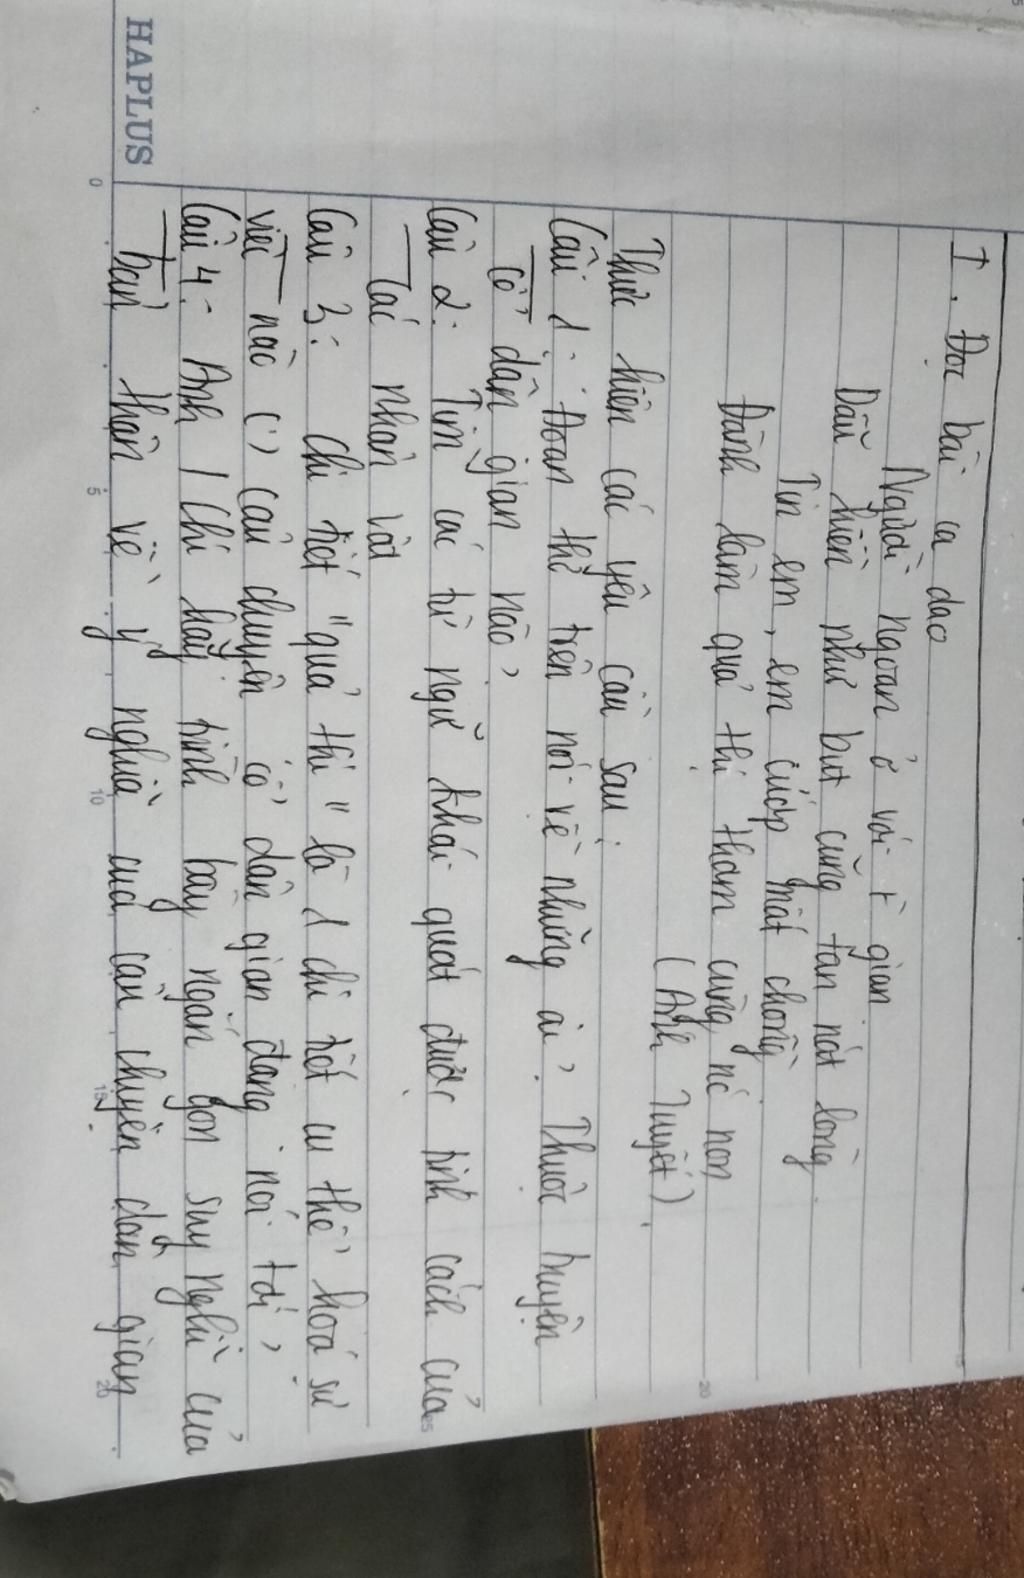 HAPLUS
I. Đọc bài ca dao
Người ngoan ở với t` gian
Dẫu hiền như bụt cũng tan nát lòng
Tin em, em cướp mất chồng
Đành làm quả thị thơm cùng nc non
(Anh Tuyết).
Thực hiện các yêu cầu sau:
Câu 1: Đoạn thơ trên nói về những ai? Thuộc truyện
cổ dân gian nào?
Câu 2: Tìm các từ ngữ khái quát được tính cách của
các nhân vật
Câu 3: Chi tiết "quả thị" là 1 chi tiết cụ thể hoá sự
việc nào () câu chuyện cổ dân gian đang nói tới?
Câu 4: Anh / Chị hãy trình bày ngắn gọn suy nghĩ của
bản thân về ý nghĩa của câu chuyện dân gian
0 5 10 15 20
20
25